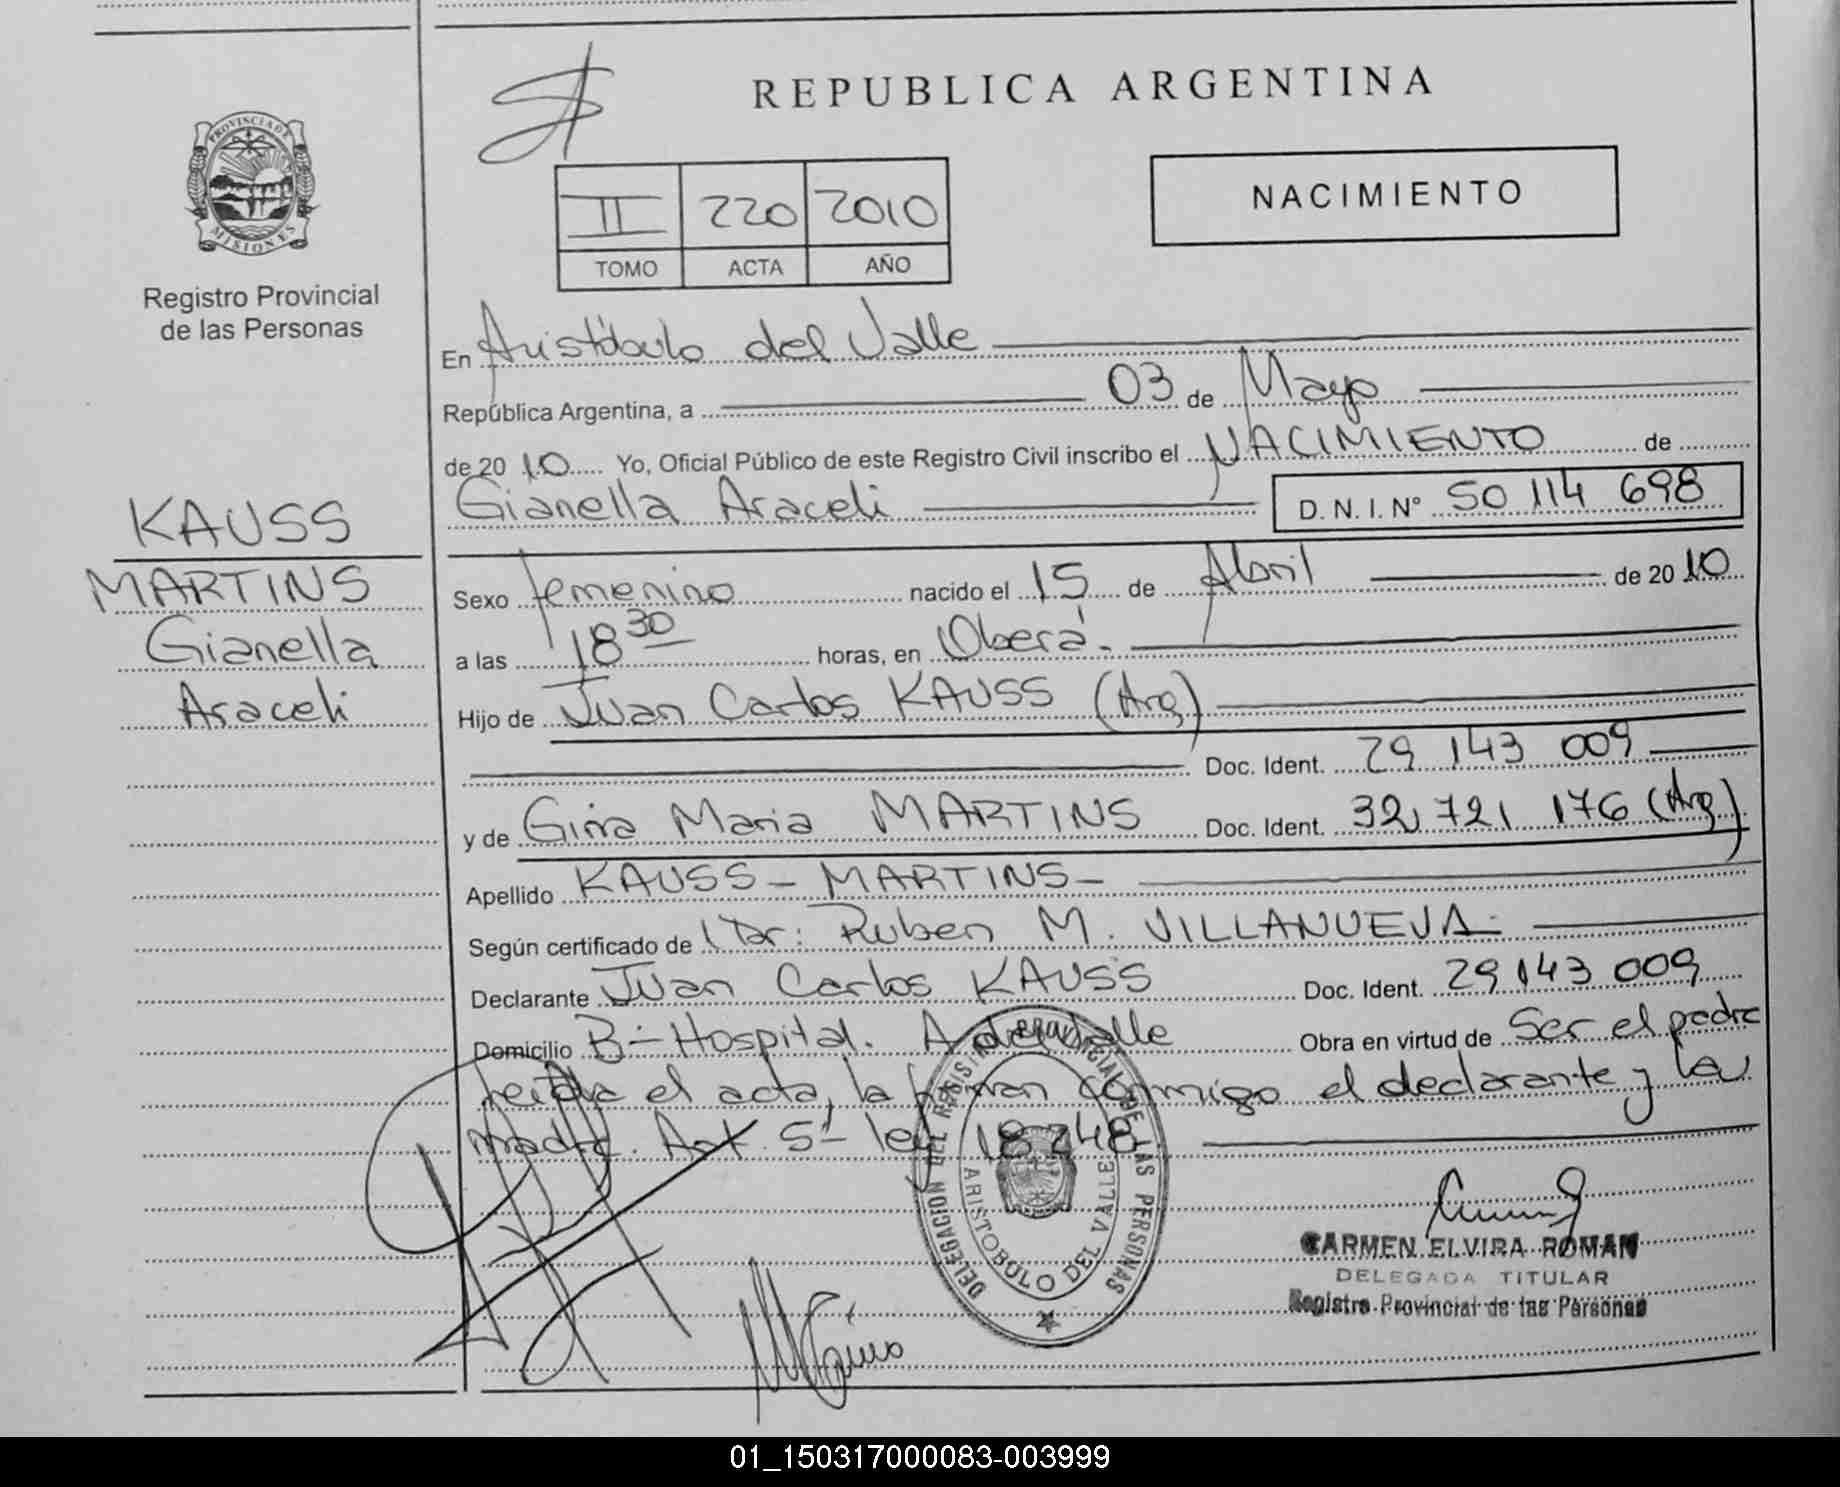 PROVINCIA DE
MISIONES
Registro Provincial
de las Personas
KAUSS
MARTINS
Gianella
Araceli
REPUBLICA ARGENTINA
II 220 2010
TOMO ACTA AÑO
NACIMIENTO
En Aristóbulo del Valle
República Argentina, a 03 de Mayo
de 2010 Yo, Oficial Público de este Registro Civil inscribo el NACIMIENTO de
Gianella Araceli D.N.I.Nº 50 114 698
Sexo femenino nacido el 15 de Abril de 2010
a las 18 30 horas, en Oberá.
Hijo de Juan Carlos KAUSS (Arg)
Doc. Ident. 29 143 009
y de Gina Maria MARTINS Doc. Ident. 32 721 176 (Arg)
Apellido KAUSS - MARTINS -
Según certificado de Dr: Ruben M. VILLANUEVA
Declarante Juan Carlos KAUSS Doc. Ident. 29 143 009
Domicilio B- Hospital. A del Valle Obra en virtud de Ser el padre
leida el acta, la firman conmigo el declarante y la
madre. Art 5º ley 18248
DELEGACION DEL REGISTRO PROVINCIAL DE LAS PERSONAS
ARISTOBULO DEL VALLE
CARMEN ELVIRA ROMAN
DELEGADA TITULAR
Registro Provincial de las Personas
01_150317000083-003999